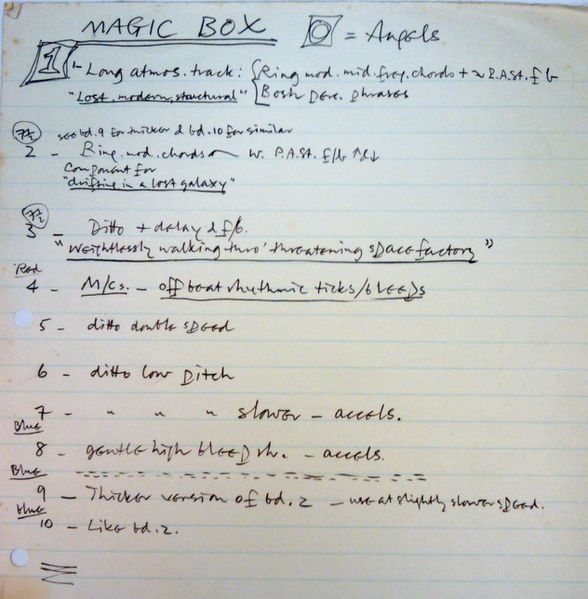 MAGIC BOX O = Angels
1 - Long atmos. track: Ring mod. mid. freq. chords + P.A.St. f/b
"Lost, modern, structural" Bosh perc. phrases
7½ see bd. 9 for thicker & bd. 10 for similar
2 - Ring. mod. chords w. P.A.St. f/b ↑&↓
Component for
"drifting in a lost galaxy"
7½
3 - Ditto + delay & f/b.
"weightlessly walking thro' threatening space factory"
Red
4 - M/Cs. - off beat rhythmic ticks/bleeps
5 - ditto double speed
6 - ditto low pitch
7 - " " " slower - accels.
Blue
8 - gentle high bleep rh. - accels.
Blue
9 - Thicker version of bd. 2 - use at slightly slower speed.
blue
10 - Like bd. 2.